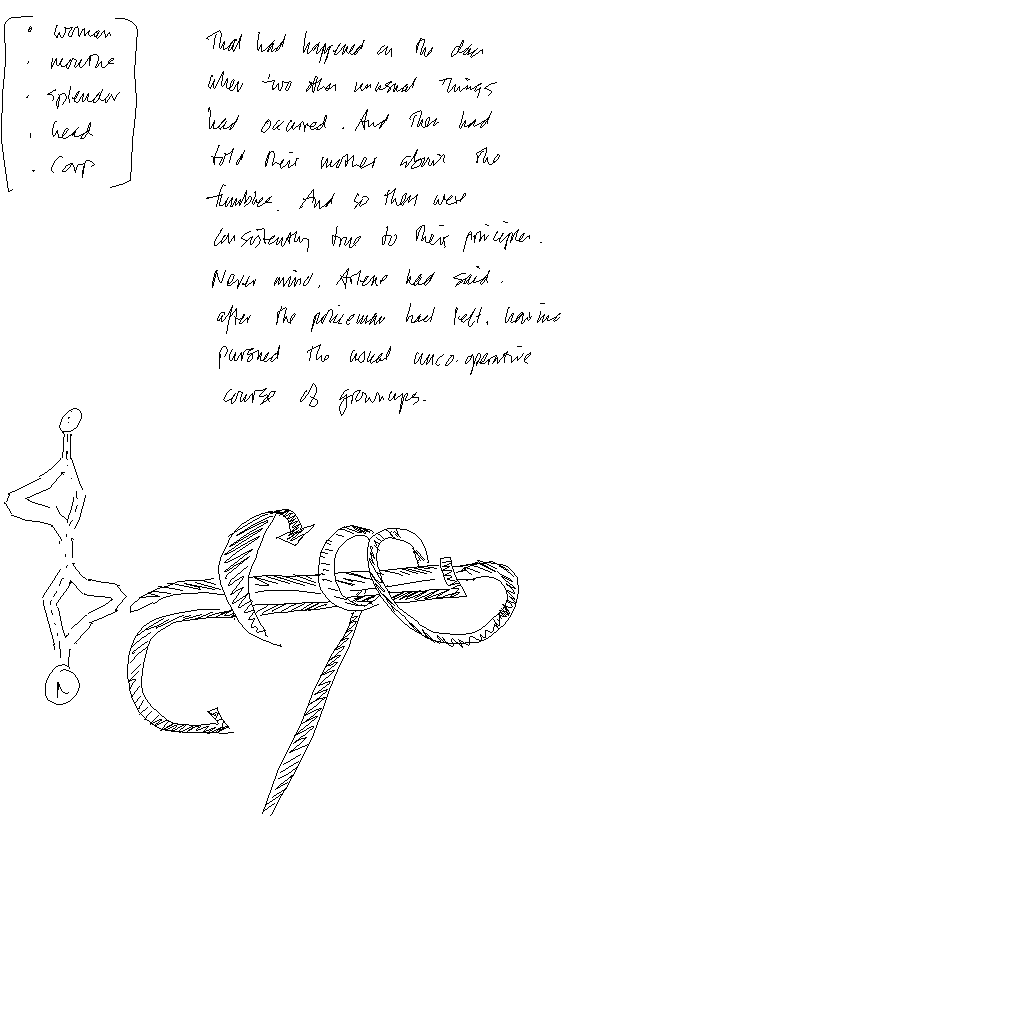 woman
mouthe
splendor
head
Carp
That had happened on the day
when two other unusual things
had occurred. And they had
told their mother about the
And so they were
consistently true to their principles.
Never mind, Arlene had said.
after the policeman had left, having
pursued the usual unco-operative
course of grownups.
N